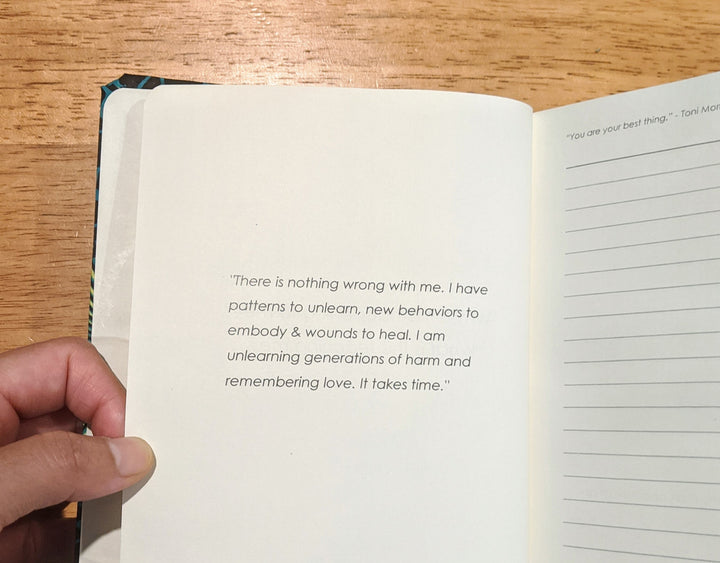 'There is nothing wrong with me. I have
patterns to unlearn, new behaviors to
embody & wounds to heal. I am
unlearning generations of harm and
remembering love. It takes time."
"You are your best thing." - Toni